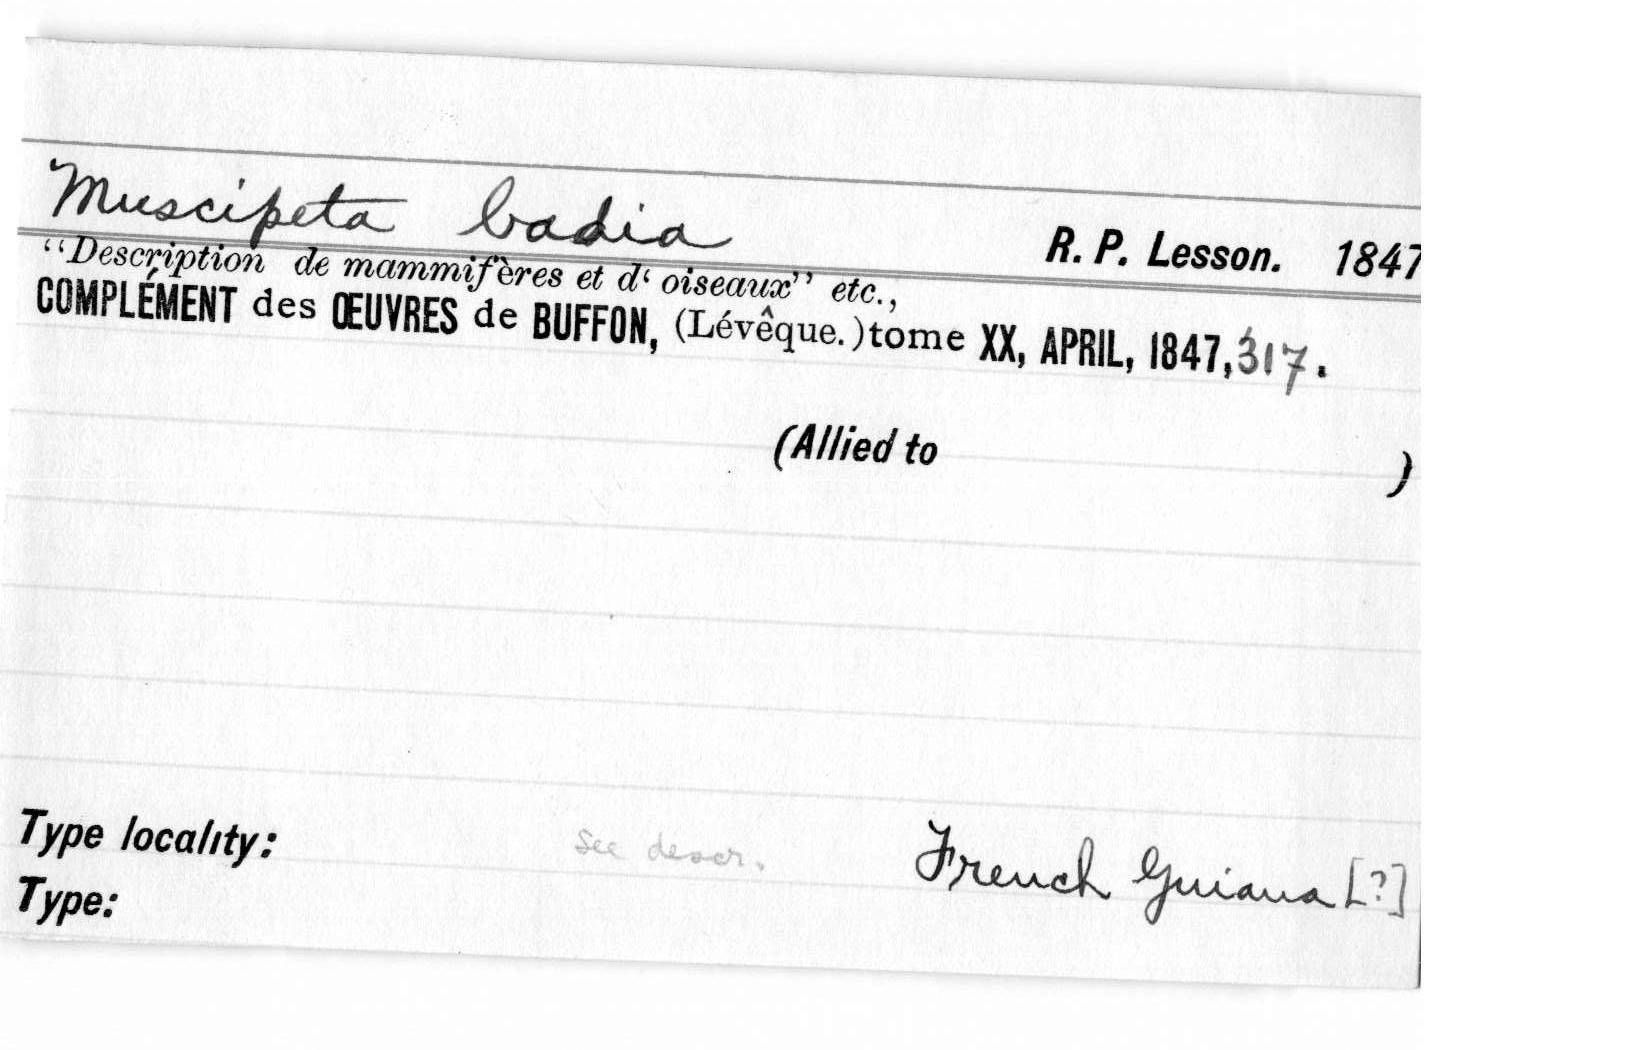 Muscipeta badia
R. P. Lesson. 1847
“Description de mammifères et d‘ oiseaux” etc.,
COMPLÉMENT des ŒUVRES de BUFFON, (Lévêque.) tome XX, APRIL, 1847, 317.
(Allied to )
Type locality: See descr. French Guiana [?]
Type: